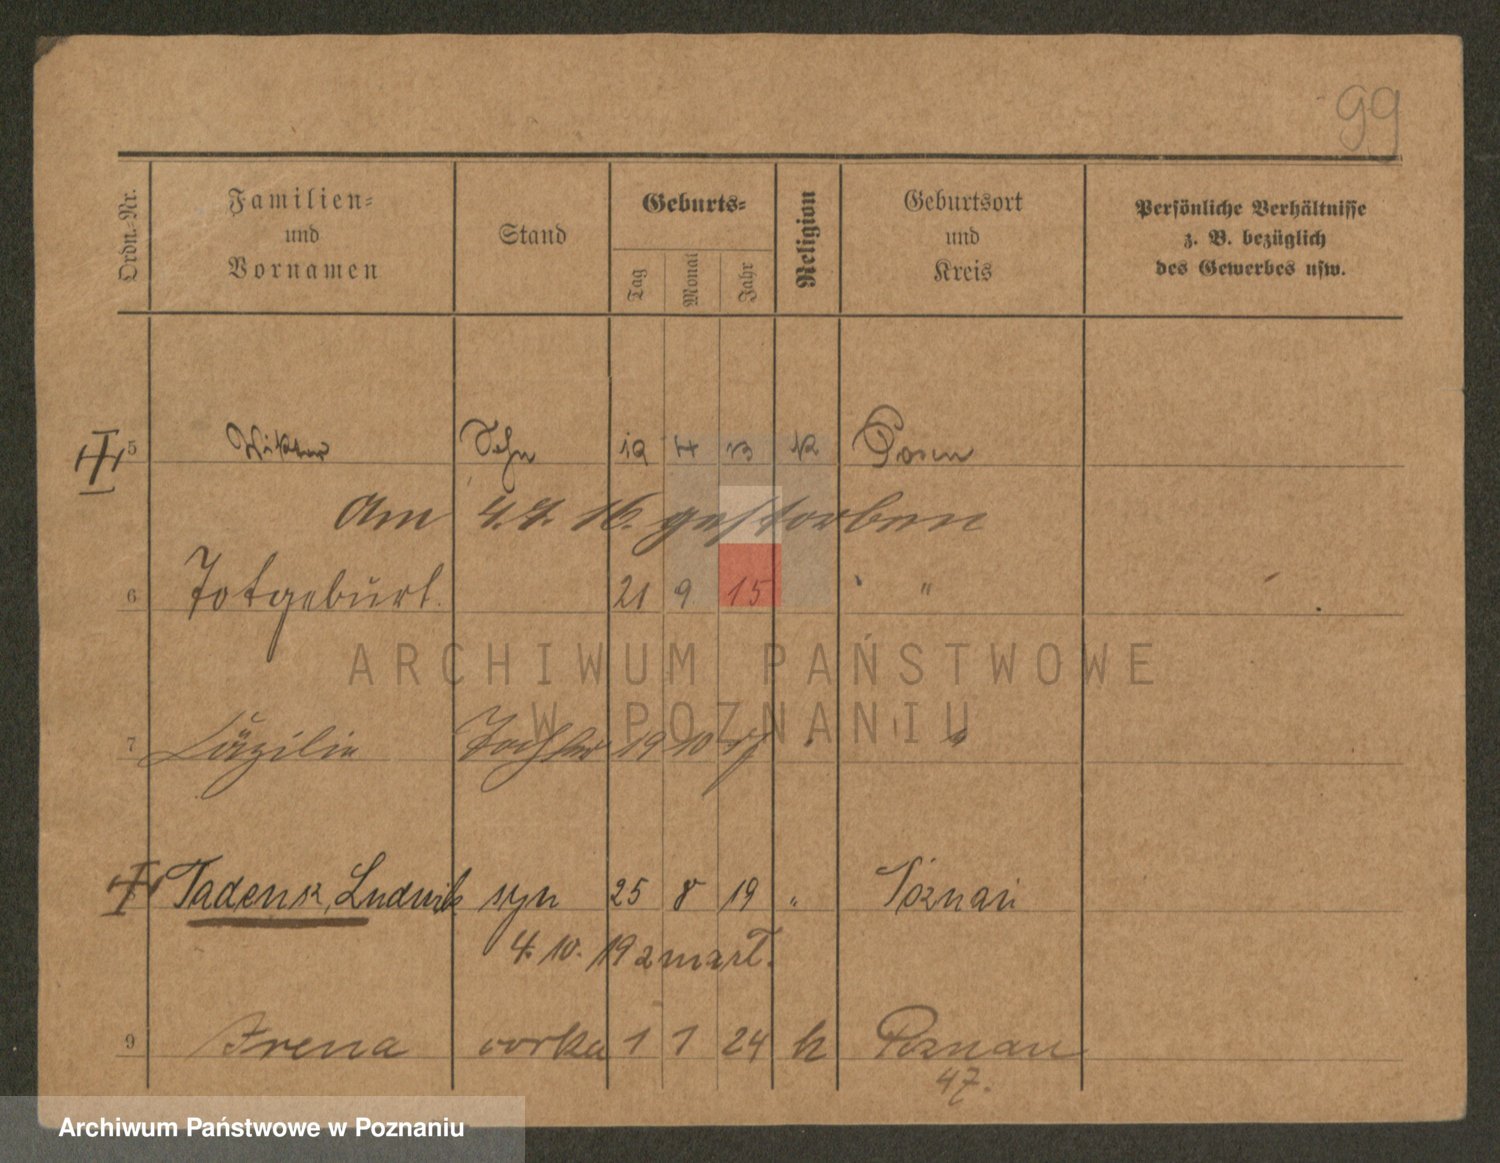 99
Ordn.-Nr.
Familien-
und
Vornamen
Stand
Geburts-
Tag
Monat
Jahr
Religion
Geburtsort
und
Kreis
Persönliche Verhältnisse
z. B. bezüglich
des Gewerbes usw.
5 Viktor Sohn 19 13 k Posen
Am 4. 7. 16. gestorben
6 Totgeburt. 21 9 15 "
7 Cäzilie Tochter 19 10 17 "
Tadeusz, Ludwik syn 25 8 19 " Poznań
4. 10. 19 zmarł.
9 Irena córka 1 1 24 k Poznań
47.
ARCHIWUM PAŃSTWOWE
W POZNANIU
Archiwum Państwowe w Poznaniu